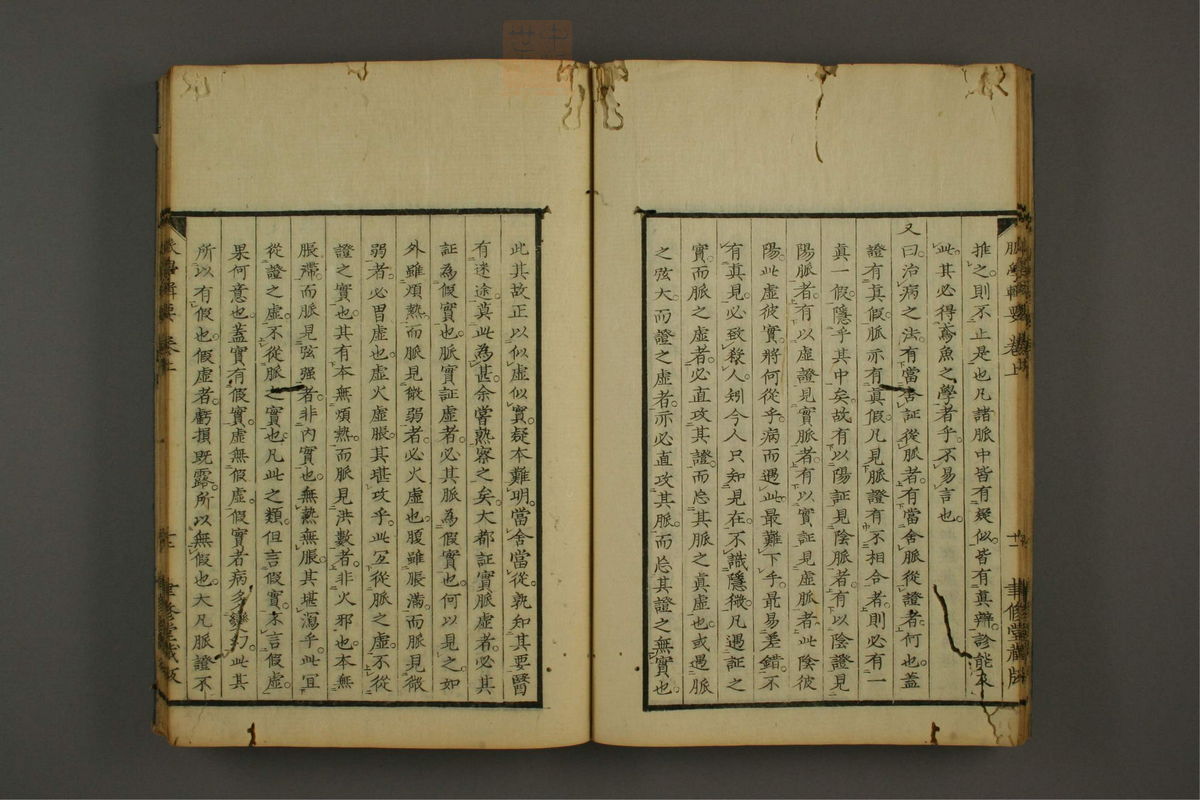 推之則不止是也凡諸脈中皆有疑似皆有真辨診能及
此其必得鳶魚之學者乎不易言也
又曰治病之法有當舍証從脈者有當舍脈從證者何也蓋
證有真假脈亦有真假凡見脈證有不相合者則必有一
真一假隱乎其中矣故有以陽証見陰脈者有以陰證見
陽脈者有以虛證見實脈者有以實証見虛脈者此陰彼
陽此虛彼實將何從乎病而遇此最難下手最易差錯不
有真見必致殺人矧今人只知見在不識隱微凡遇証之
實而脈之虛者必直攻其證而忘其脈之真虛也或遇脈
之弦大而證之虛者亦必直攻其脈而忘其證之無實也
脈學輯要 卷上
十一
聿修堂藏版
此其故正以似虛似實疑本難明當舍當從孰知其要醫
有迷途莫此為甚余嘗熟察之矣大都証實脈虛者必其
証為假實也脈實証虛者必其脈為假實也何以見之如
外雖煩熱而脈見微弱者必火虛也腹雖脹滿而脈見微
弱者必胃虛也虛火虛脹其堪攻乎此宜從脈之虛不從
證之實也其有本無煩熱而脈見洪數者非火邪也本無
脹滯而脈見弦强者非內實也無熱無脹其堪瀉乎此宜
從證之虛不從脈之實也凡此之類但言假實不言假虛
果何意也蓋實有假實虛無假虛假實者病多變幻此其
所以有假也假虛者虧損既露所以無假也大凡脈證不